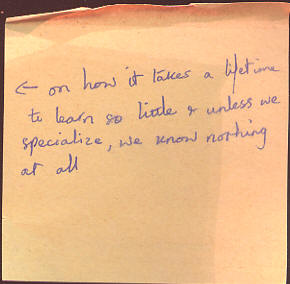 ← on how it takes a lifetime
to learn so little & unless we
specialize, we know nothing
at all